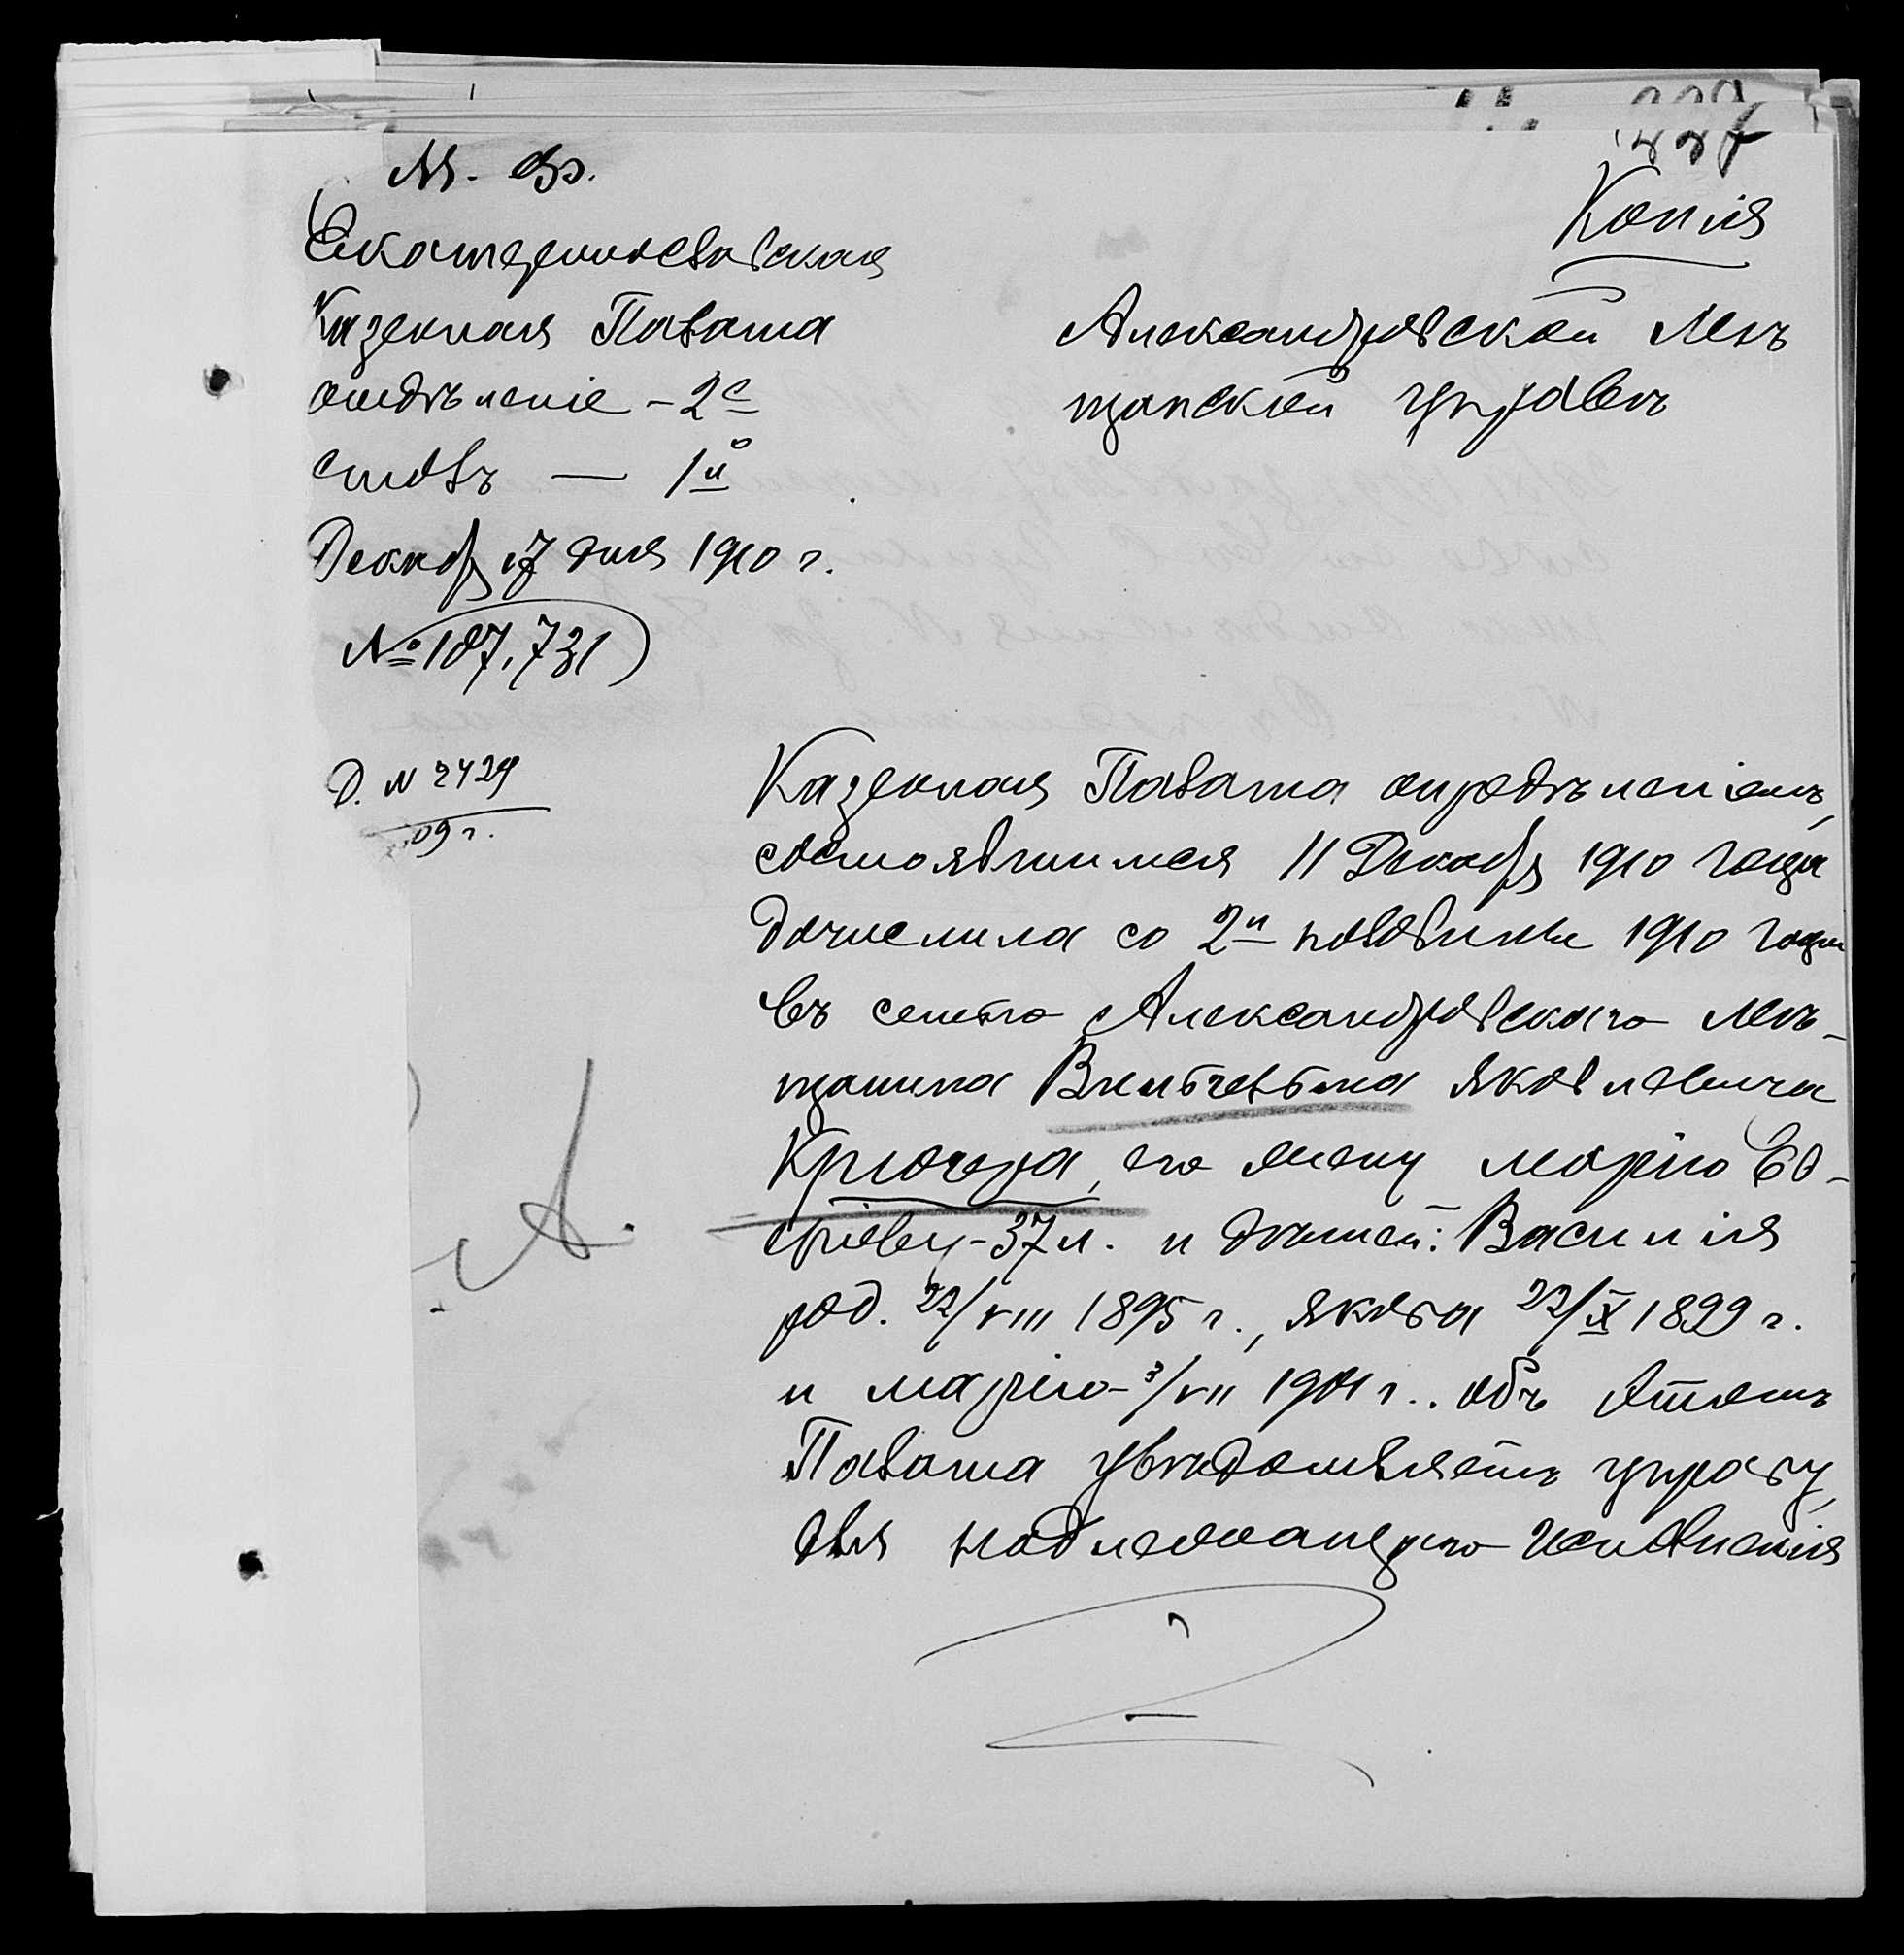 227
Копія
М. Ф.
Екатеринославская
Казенная Палата
отдѣленіе - 2е
столъ — 1й
Декабр 17 дня 1910 г.
№ 187,731
Александровской Мѣ
щанской управѣ
Д. N 2429
09 г.
Казенная Палата опредѣленіемъ,
состоявшимся 11 Декабр 1910 года
дочислила со 2й половины 1910 года
въ семью Александровскаго Мѣ-
щанина Вильгельма Яковлевича
Крюгера, его жену Марію Ео-
37 л. и дѣтей: Василія
род. 22/VIII 1895 г., Якова 22/IX 1899 г.
и Марію - 3/VII 1901 г.. Объ этомъ
Палата увѣдомляетъ управу,
для надлежащаго исполненія